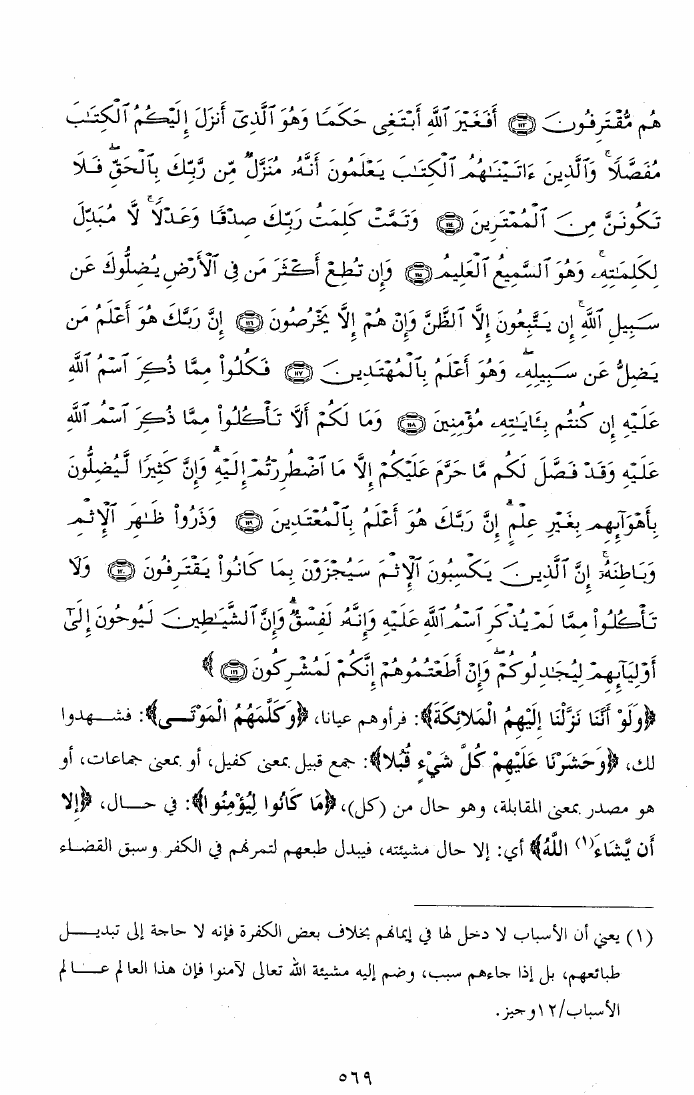 هُم مُّقْتَرِفُونَ ﴿١١٣﴾ أَفَغَيْرَ ٱللَّهِ أَبْتَغِى حَكَمًا وَهُوَ ٱلَّذِىٓ أَنزَلَ إِلَيْكُمُ ٱلْكِتَـٰبَ
مُفَصَّلًا ۚ وَٱلَّذِينَ ءَاتَيْنَـٰهُمُ ٱلْكِتَـٰبَ يَعْلَمُونَ أَنَّهُۥ مُنَزَّلٌ مِّن رَّبِّكَ بِٱلْحَقِّ ۖ فَلَا
تَكُونَنَّ مِنَ ٱلْمُمْتَرِينَ ﴿١١٤﴾ وَتَمَّتْ كَلِمَتُ رَبِّكَ صِدْقًا وَعَدْلًا ۚ لَّا مُبَدِّلَ
لِكَلِمَـٰتِهِۦ ۚ وَهُوَ ٱلسَّمِيعُ ٱلْعَلِيمُ ﴿١١٥﴾ وَإِن تُطِعْ أَكْثَرَ مَن فِى ٱلْأَرْضِ يُضِلُّوكَ عَن
سَبِيلِ ٱللَّهِ ۚ إِن يَتَّبِعُونَ إِلَّا ٱلظَّنَّ وَإِنْ هُمْ إِلَّا يَخْرُصُونَ ﴿١١٦﴾ إِنَّ رَبَّكَ هُوَ أَعْلَمُ مَن
يَضِلُّ عَن سَبِيلِهِۦ ۖ وَهُوَ أَعْلَمُ بِٱلْمُهْتَدِينَ ﴿١١٧﴾ فَكُلُوا۟ مِمَّا ذُكِرَ ٱسْمُ ٱللَّهِ
عَلَيْهِ إِن كُنتُم بِـَٔايَـٰتِهِۦ مُؤْمِنِينَ ﴿١١٨﴾ وَمَا لَكُمْ أَلَّا تَأْكُلُوا۟ مِمَّا ذُكِرَ ٱسْمُ ٱللَّهِ
عَلَيْهِ وَقَدْ فَصَّلَ لَكُم مَّا حَرَّمَ عَلَيْكُمْ إِلَّا مَا ٱضْطُرِرْتُمْ إِلَيْهِ ۗ وَإِنَّ كَثِيرًا لَّيُضِلُّونَ
بِأَهْوَآئِهِم بِغَيْرِ عِلْمٍ ۗ إِنَّ رَبَّكَ هُوَ أَعْلَمُ بِٱلْمُعْتَدِينَ ﴿١١٩﴾ وَذَرُوا۟ ظَـٰهِرَ ٱلْإِثْمِ
وَبَاطِنَهُۥٓ ۚ إِنَّ ٱلَّذِينَ يَكْسِبُونَ ٱلْإِثْمَ سَيُجْزَوْنَ بِمَا كَانُوا۟ يَقْتَرِفُونَ ﴿١٢٠﴾ وَلَا
تَأْكُلُوا۟ مِمَّا لَمْ يُذْكَرِ ٱسْمُ ٱللَّهِ عَلَيْهِ وَإِنَّهُۥ لَفِسْقٌ ۗ وَإِنَّ ٱلشَّيَـٰطِينَ لَيُوحُونَ إِلَىٰٓ
أَوْلِيَآئِهِمْ لِيُجَـٰدِلُوكُمْ ۖ وَإِنْ أَطَعْتُمُوهُمْ إِنَّكُمْ لَمُشْرِكُونَ ﴿١٢١﴾ ﴾
﴿وَلَوْ أَنَّنَا نَزَّلْنَا إِلَيْهِمُ الْمَلائِكَةَ﴾: فرأوهم عيانا، ﴿وَكَلَّمَهُمُ الْمَوْتَى﴾: فشهدوا
لك، ﴿وَحَشَرْنَا عَلَيْهِمْ كُلَّ شَيْءٍ قُبُلا﴾: جمع قبيل بمعنى كفيل، أو بمعنى جماعات، أو
هو مصدر بمعنى المقابلة، وهو حال من (كل)، ﴿مَا كَانُوا لِيُؤْمِنُوا﴾: في حال، ﴿إِلا
أَن يَّشَاءَ(١) اللَّهُ﴾ أي: إلا حال مشيئته، فيبدل طبعهم لتمرنهم في الكفر وسبق القضاء
(١) يعني أن الأسباب لا دخل لها في إيمانهم بخلاف بعض الكفرة فإنه لا حاجة إلى تبديل
طبائعهم، بل إذا جاءهم سبب، وضم إليه مشيئة الله تعالى لآمنوا فإن هذا العالم عالم
الأسباب/١٢وجيز.
٥٦٩